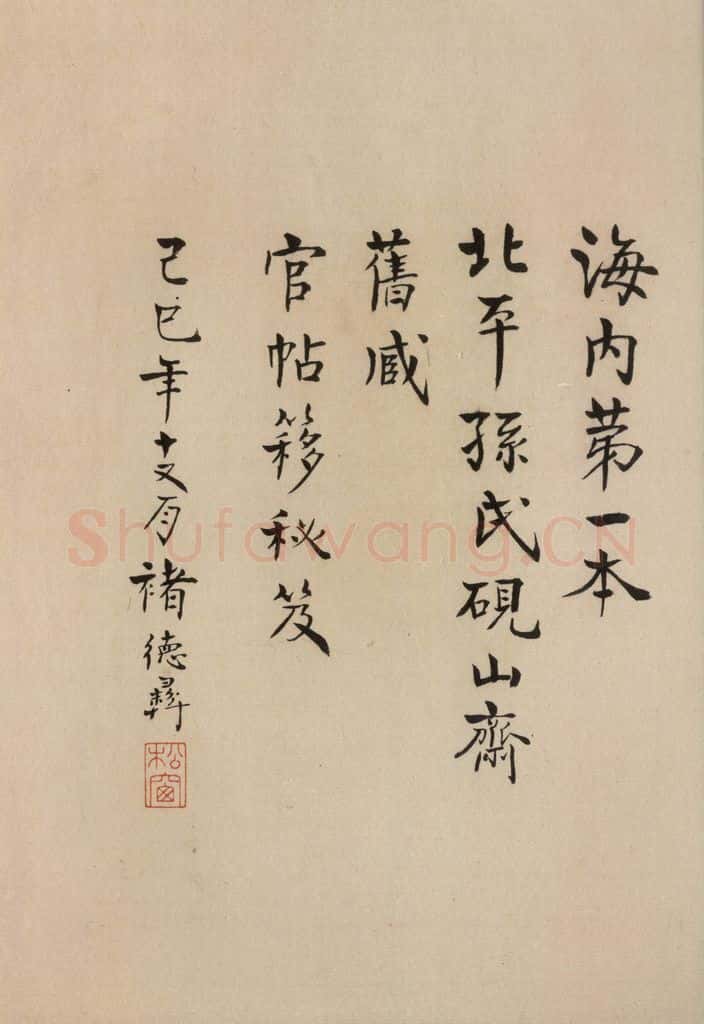 海内苐一本
北平孫氏硯山齋
舊臧
官帖簃秘笈
己巳年十又月褚德彝
松窗
Shufawang.CN